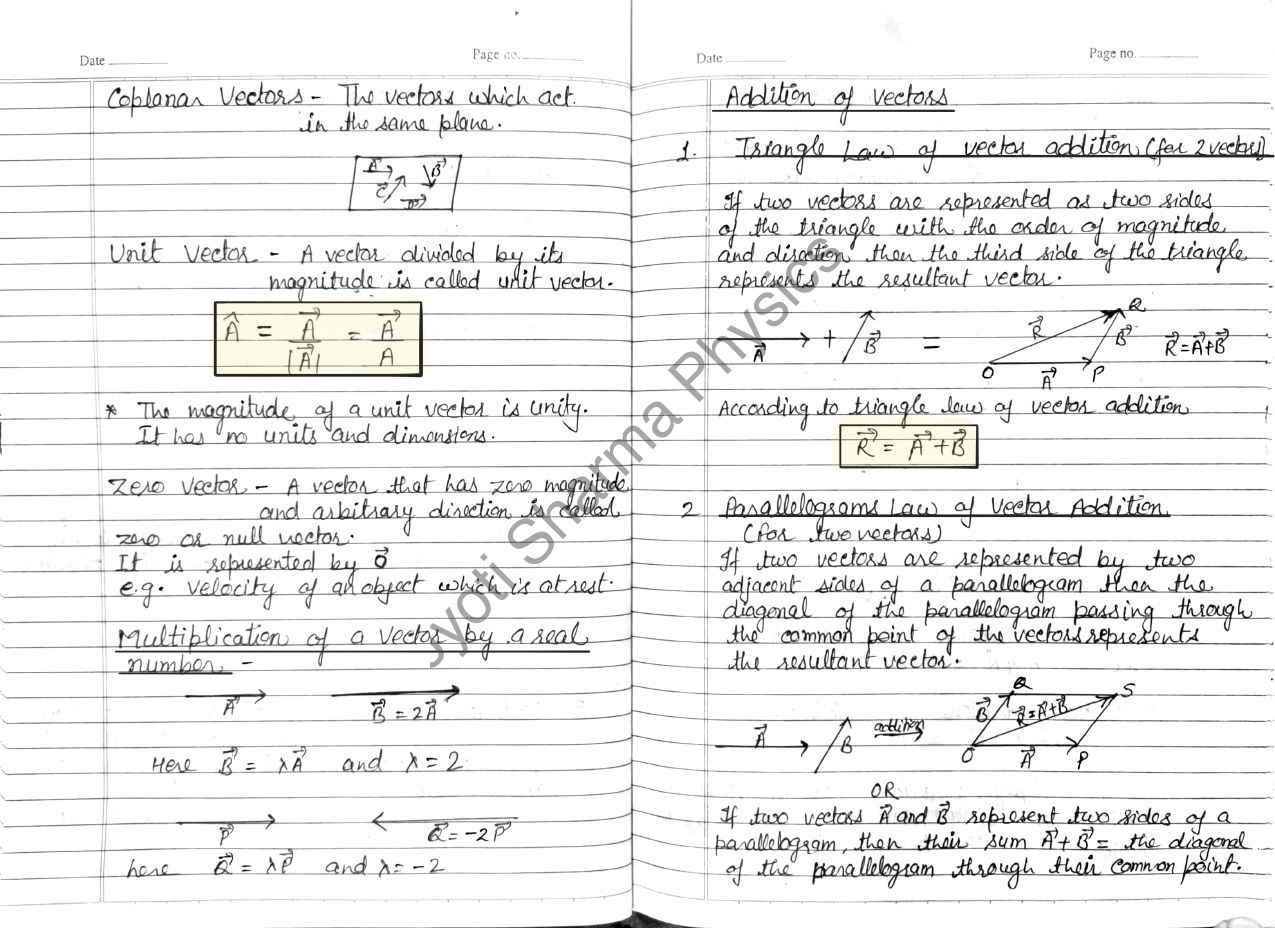 Date
Page no.
Coplanar Vectors - The vectors which act
in the same plane.
A B
C
D
Unit Vector - A vector divided by its
magnitude is called unit vector.
Â = A⃗ / |A⃗| = A⃗ / A
* The magnitude of a unit vector is unity.
It has no units and dimensions.
Zero Vector - A vector that has zero magnitude
and arbitrary direction is called
zero or null vector.
It is represented by 0⃗
e.g. velocity of an object which is at rest.
Multiplication of a vector by a real
number -
A⃗ B⃗ = 2A⃗
Here B⃗ = λA⃗ and λ = 2
P⃗ Q⃗ = -2P⃗
here Q⃗ = λP⃗ and λ = -2
Jyoti Sharma Physics
Date
Page no.
Addition of vectors
1. Triangle Law of vector addition (for 2 vectors)
If two vectors are represented as two sides
of the triangle with the order of magnitude
and direction then the third side of the triangle
represents the resultant vector.
A⃗ + B⃗ = O A⃗ P B⃗ Q R⃗ R⃗ = A⃗+B⃗
According to triangle law of vector addition
R⃗ = A⃗ + B⃗
2 Parallelograms Law of Vector Addition
(for two vectors)
If two vectors are represented by two
adjacent sides of a parallelogram then the
diagonal of the parallelogram passing through
the common point of the vectors represents
the resultant vector.
A⃗ B addition O A⃗ P B⃗ Q S R⃗=A⃗+B⃗
OR
If two vectors A⃗ and B⃗ represent two sides of a
parallelogram, then their sum A⃗+B⃗ = the diagonal
of the parallelogram through their common point.